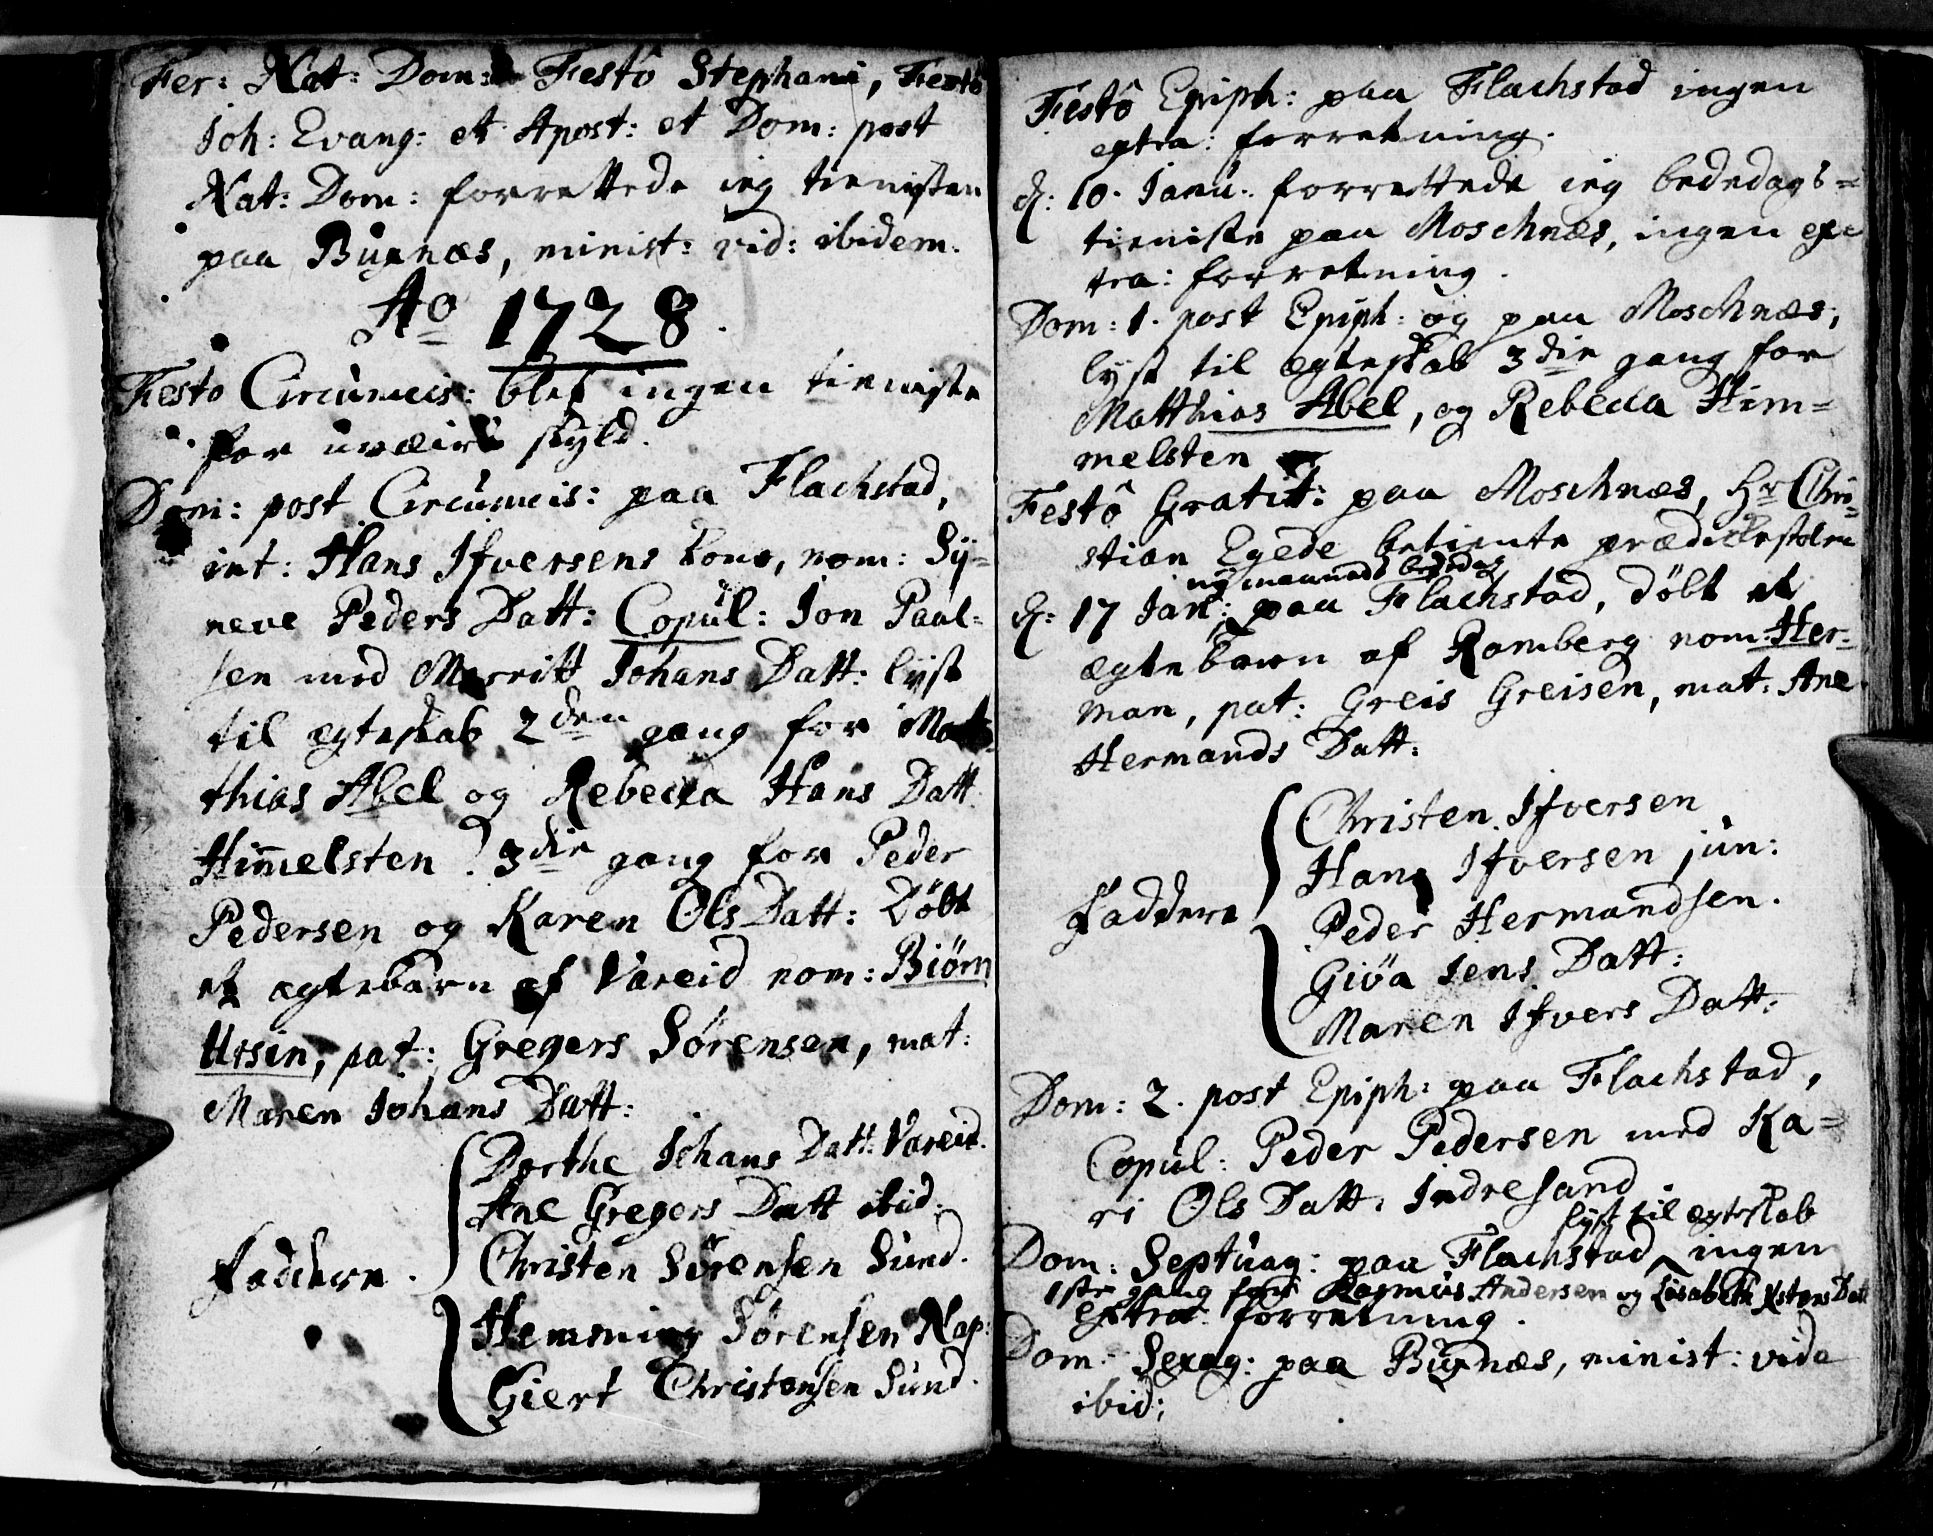 Fer: Nat: Dom: Festô Stephani, Festô
Joh: Evang: et Apost: et Dom: post
Nat: Dom: forrettede ieg tienisten
paa Buxnæs, minist: vid: ibidem.
Aº 1728.
Festo Circumcis: blef ingen tieniste
for uvæirs skyld.
Dom: post Circumcis: paa Flachstad,
int: Hans Ifversens Kone, nom: Sy=
neve Peders Datt: Copul: Jon Paal-
sen med Marritt Johans Datt: lyst
til ægteskab 2den gang for Mat-
thias Abel og Rebecca Hans Datt
Himmelsten. 3die gang for Peder
Pedersen og Karen Ols Datt: Döbt
et ægtebarn af Vareid nom: Biörn
Ursin, pat: Gregers Sörensen, mat:
Maren Johans Datt:
Faddere.
Dorthe Johans Datt: Vareid.
Ane Gregers Datt ibid:
Christen Sörensen Sund.
Hemming Sörensen Nap:
Giert Christensen Sund.
Festô Epiph: paa Flachstad ingen
extra: forretning.
d: 10. Janu: forrettede ieg bededags=
tieniste paa Moschnæs, ingen ex-
tra: forretning.
Dom: 1. post Epiph: og paa Moschnæs,
lyst til ægteskab 3die gang for
Matthias Abel, og Rebecca Him=
melsten
Festô Gratit: paa Moschnæs, Hr Chri=
stian Egede betiente prædikestolen
ny maaneds bededag
d: 17 Jan: paa Flachstad, döbt et
ægtebarn af Ramberg nom: Her=
man, pat: Greis Greisen, mat: Ane
Hermands Datt:
Faddere
Christen Ifversen
Hans Ifversen jun:
Peder Hermandsen.
Giöa Jens Datt:
Maren Ifvers Datt:
Dom: 2. post Epiph: paa Flachstad,
Copul: Peder Pedersen med Ka=
ri Ols Datt: Indresand
lyst til ægteskab
Dom: Septuag: paa Flachstad ingen
1ste gang for Rasmus Andersen og Lisabeth Datt
extra forretning.
Dom: Sexag: paa Buxnæs, minist: vide
ibid: